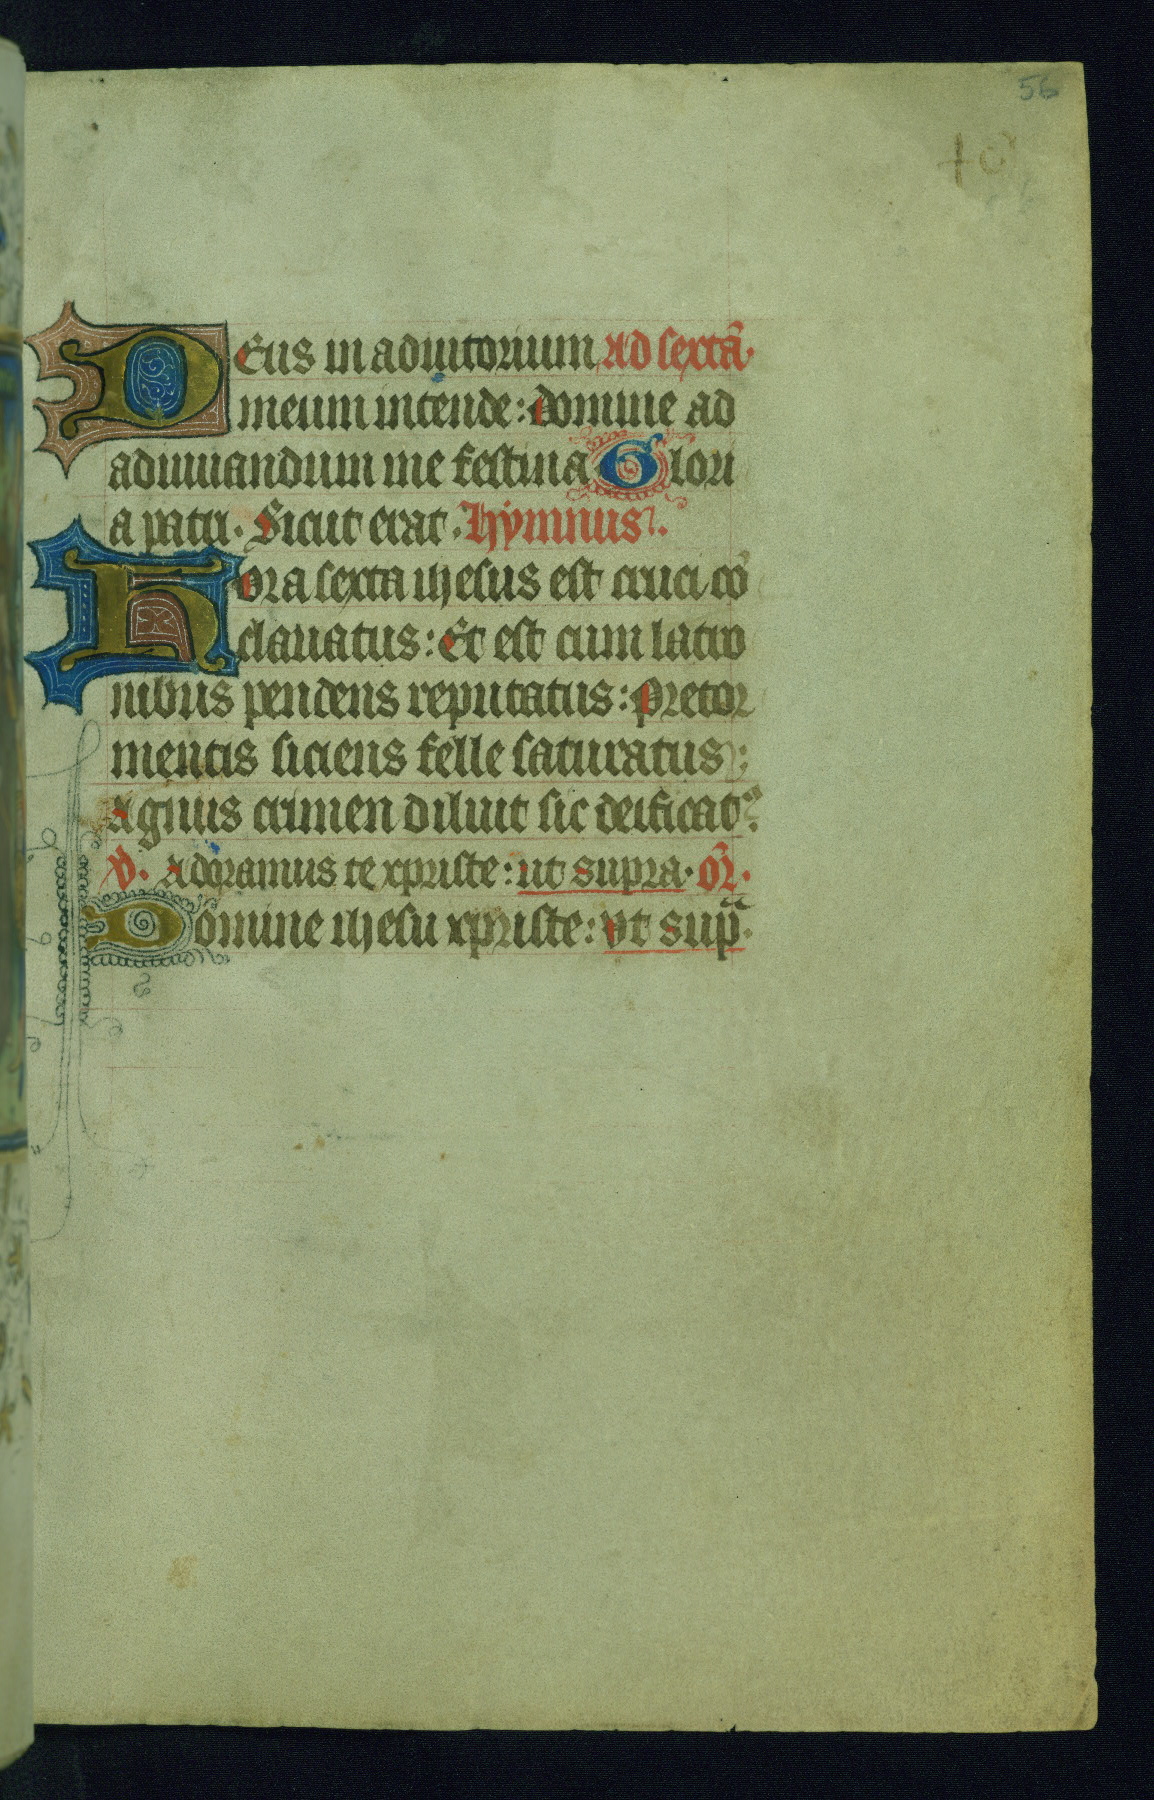 56
DEus in adiutorium Ad sextā.
meum intende: domine ad
adiuuandum me festina Glori
a patri. Sicut erat. Hymnus.
Hora sexta ihesus est cruci cō
clauatus: Et est cum latro
nibus pendens reputatus: Pretor
mentis siciens felle saturatus:
Agnus crimen diluit sic deificatꝰ.
V. Adoramus te xpriste: ut supra. Or̄.
Domine ihesu xpriste: vt sup̄.